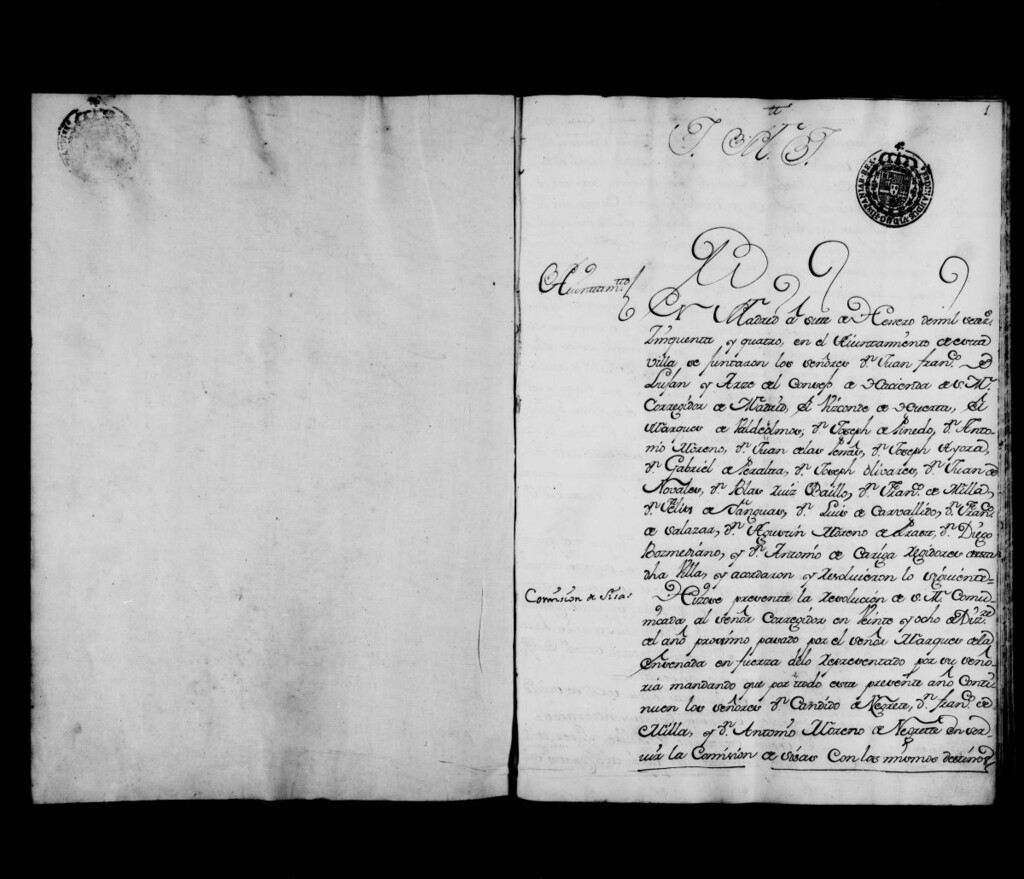 1
J. M. J.
Ayuntam.to
En Madrid á siete de Henero de mil setez.s
Zinquenta y quatro, en el Aiuntamiento de esta
Villa, se juntaron los señores d.n Juan fran.co de
Lujan y Arze del Consejo de Hacienda de S. M.
Corregidor de Madrid, el Vizconde de Huerta, el
Marques de Valdeolmos, d.n Joseph de Pinedo, d.n Anto-
nio Moreno, d.n Juan de las Peñas, d.n Joseph Ayora,
d.n Gabriel de Peralta, d.n Joseph Olivares, d.n Juan de
Novales, d.n Blas Ruiz Baillo, d.n Fran.co de Milla,
d.n Felix de Yanguas, d.n Luis de Carvallido, d.n Fran.co
de Salazar, d.n Agustin Moreno de d.n Diego
Bozmediano, y d.n Antonio de Cariga Regidores de esta
dha Villa, y acordaron y resolvieron lo siguiente
Comision de Sisas
Hizose presente la resolucion de S. M. Comu-
nicada al señor Corregidor en Veinte y ocho de Diz.re
del año proximo pasado por el señor Marques de la
Ensenada en fuerza delo representado por su seño-
ria mandando que por todo este presente año Conti-
nuen los señores d.n Candido de Negrete, d.n fran.co de
Milla, y d.n Antonio Moreno de Negrete en ser-
vir la Comision de Sisas Con las mismos destinos